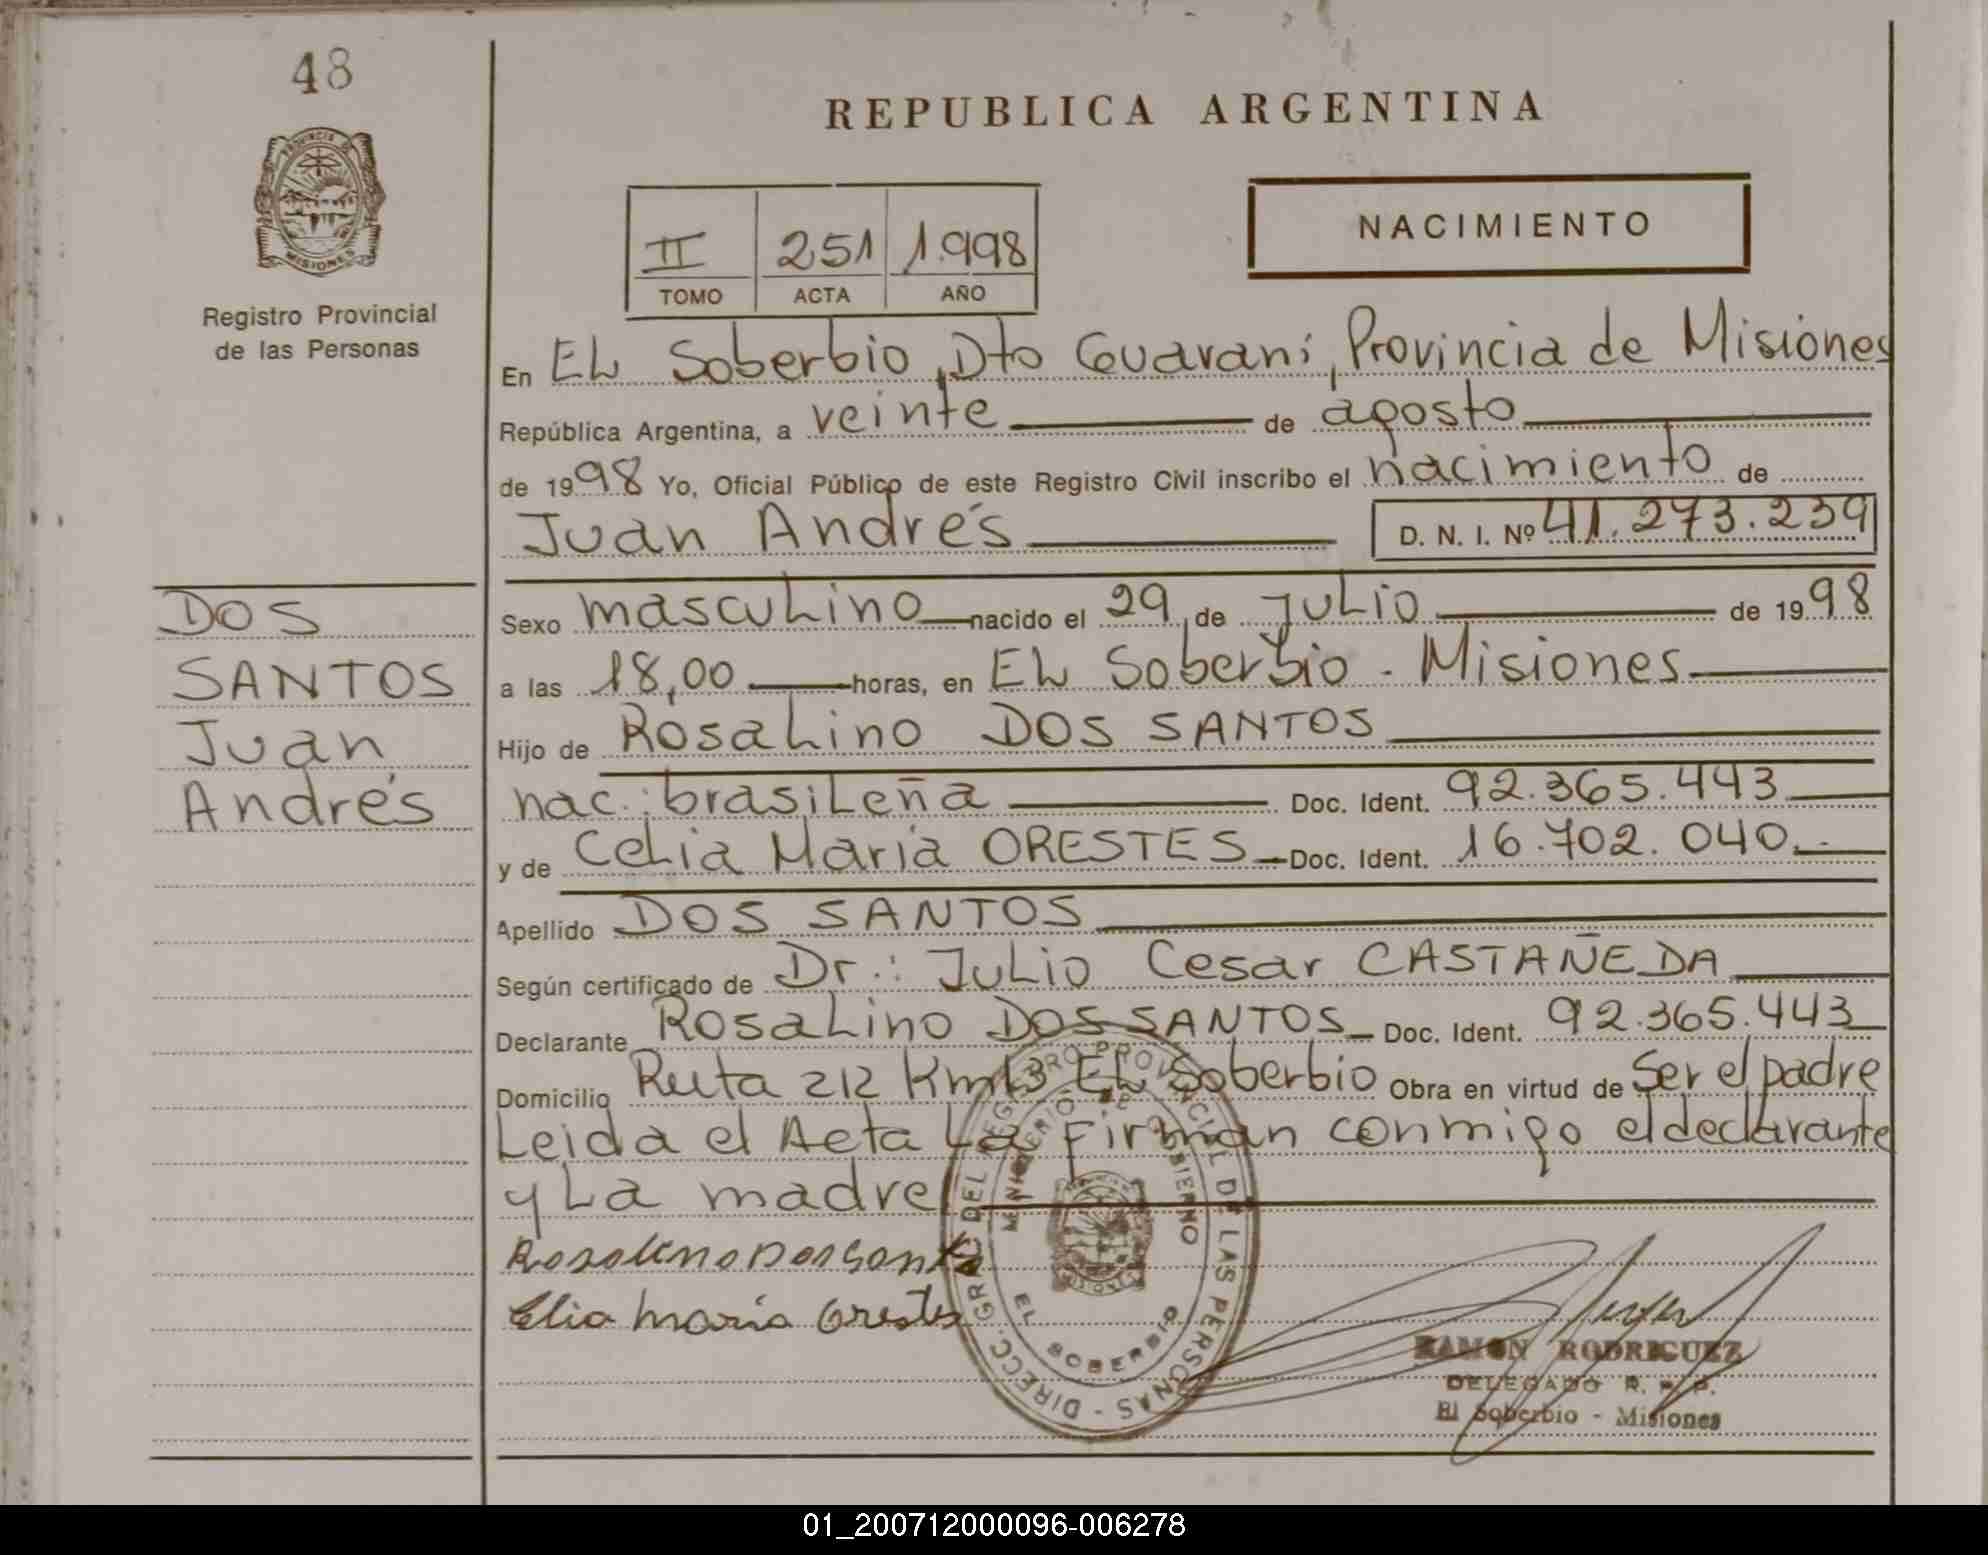 48
PROVINCIA DE
MISIONES
Registro Provincial
de las Personas
REPUBLICA ARGENTINA
II 251 1.998
TOMO ACTA AÑO
NACIMIENTO
En EL Soberbio, Dto Guaraní, Provincia de Misiones
República Argentina, a veinte de agosto
de 1998 Yo, Oficial Público de este Registro Civil inscribo el nacimiento de
Juan Andrés D. N. I. Nº 41.273.239
DOS
SANTOS
Juan
Andrés
Sexo masculino nacido el 29 de Julio de 1998
a las 18,00 horas, en EL Soberbio - Misiones
Hijo de Rosalino DOS SANTOS
nac.: brasileña Doc. Ident. 92.365.443
y de Celia María ORESTES Doc. Ident. 16.702.040.-
Apellido DOS SANTOS
Según certificado de Dr.: Julio Cesar CASTAÑEDA
Declarante Rosalino DOS SANTOS Doc. Ident. 92.365.443
Domicilio Ruta 212 Km 13 EL Soberbio Obra en virtud de Ser el padre
Leida el Acta La Firman conmigo el declarante
y La madre
Rosalino Dos Santos
Celia María Orestes
DIRECC. GRAL. DEL REGISTRO PROVINCIAL DE LAS PERSONAS -
MINISTERIO DE GOBIERNO
EL SOBERBIO
RAMON RODRIGUEZ
DELEGADO R. P. P.
El Soberbio - Misiones
01_200712000096-006278